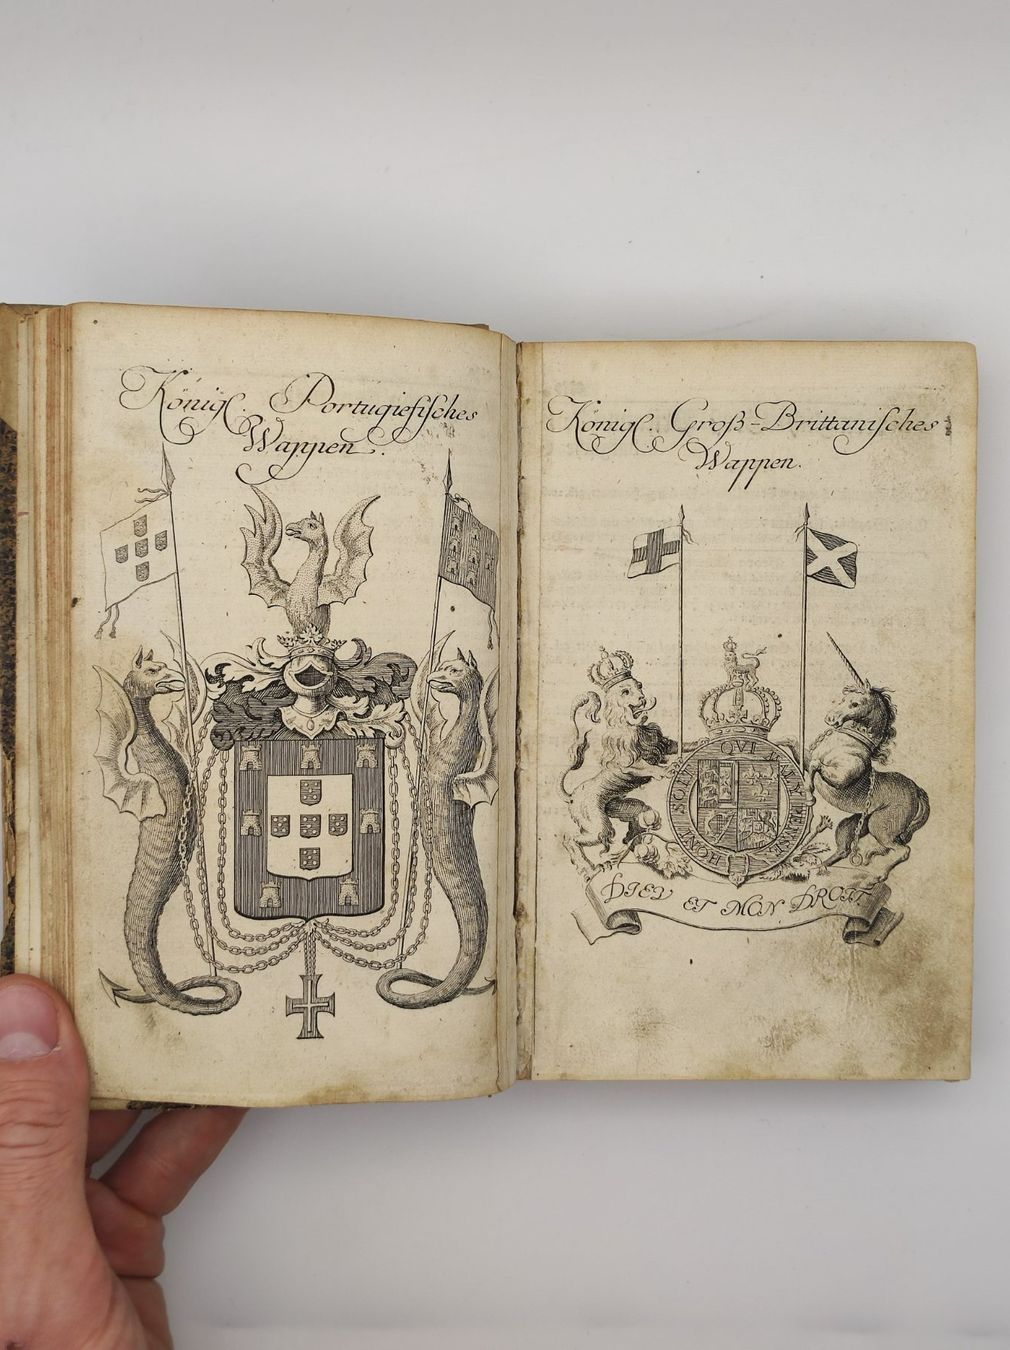 Königl. Portugiesisches
Wappen.
Königl. Groß-Brittanisches
Wappen.
HONI SOIT QVI MAL Y PENSE
DIEV ET MON DROIT